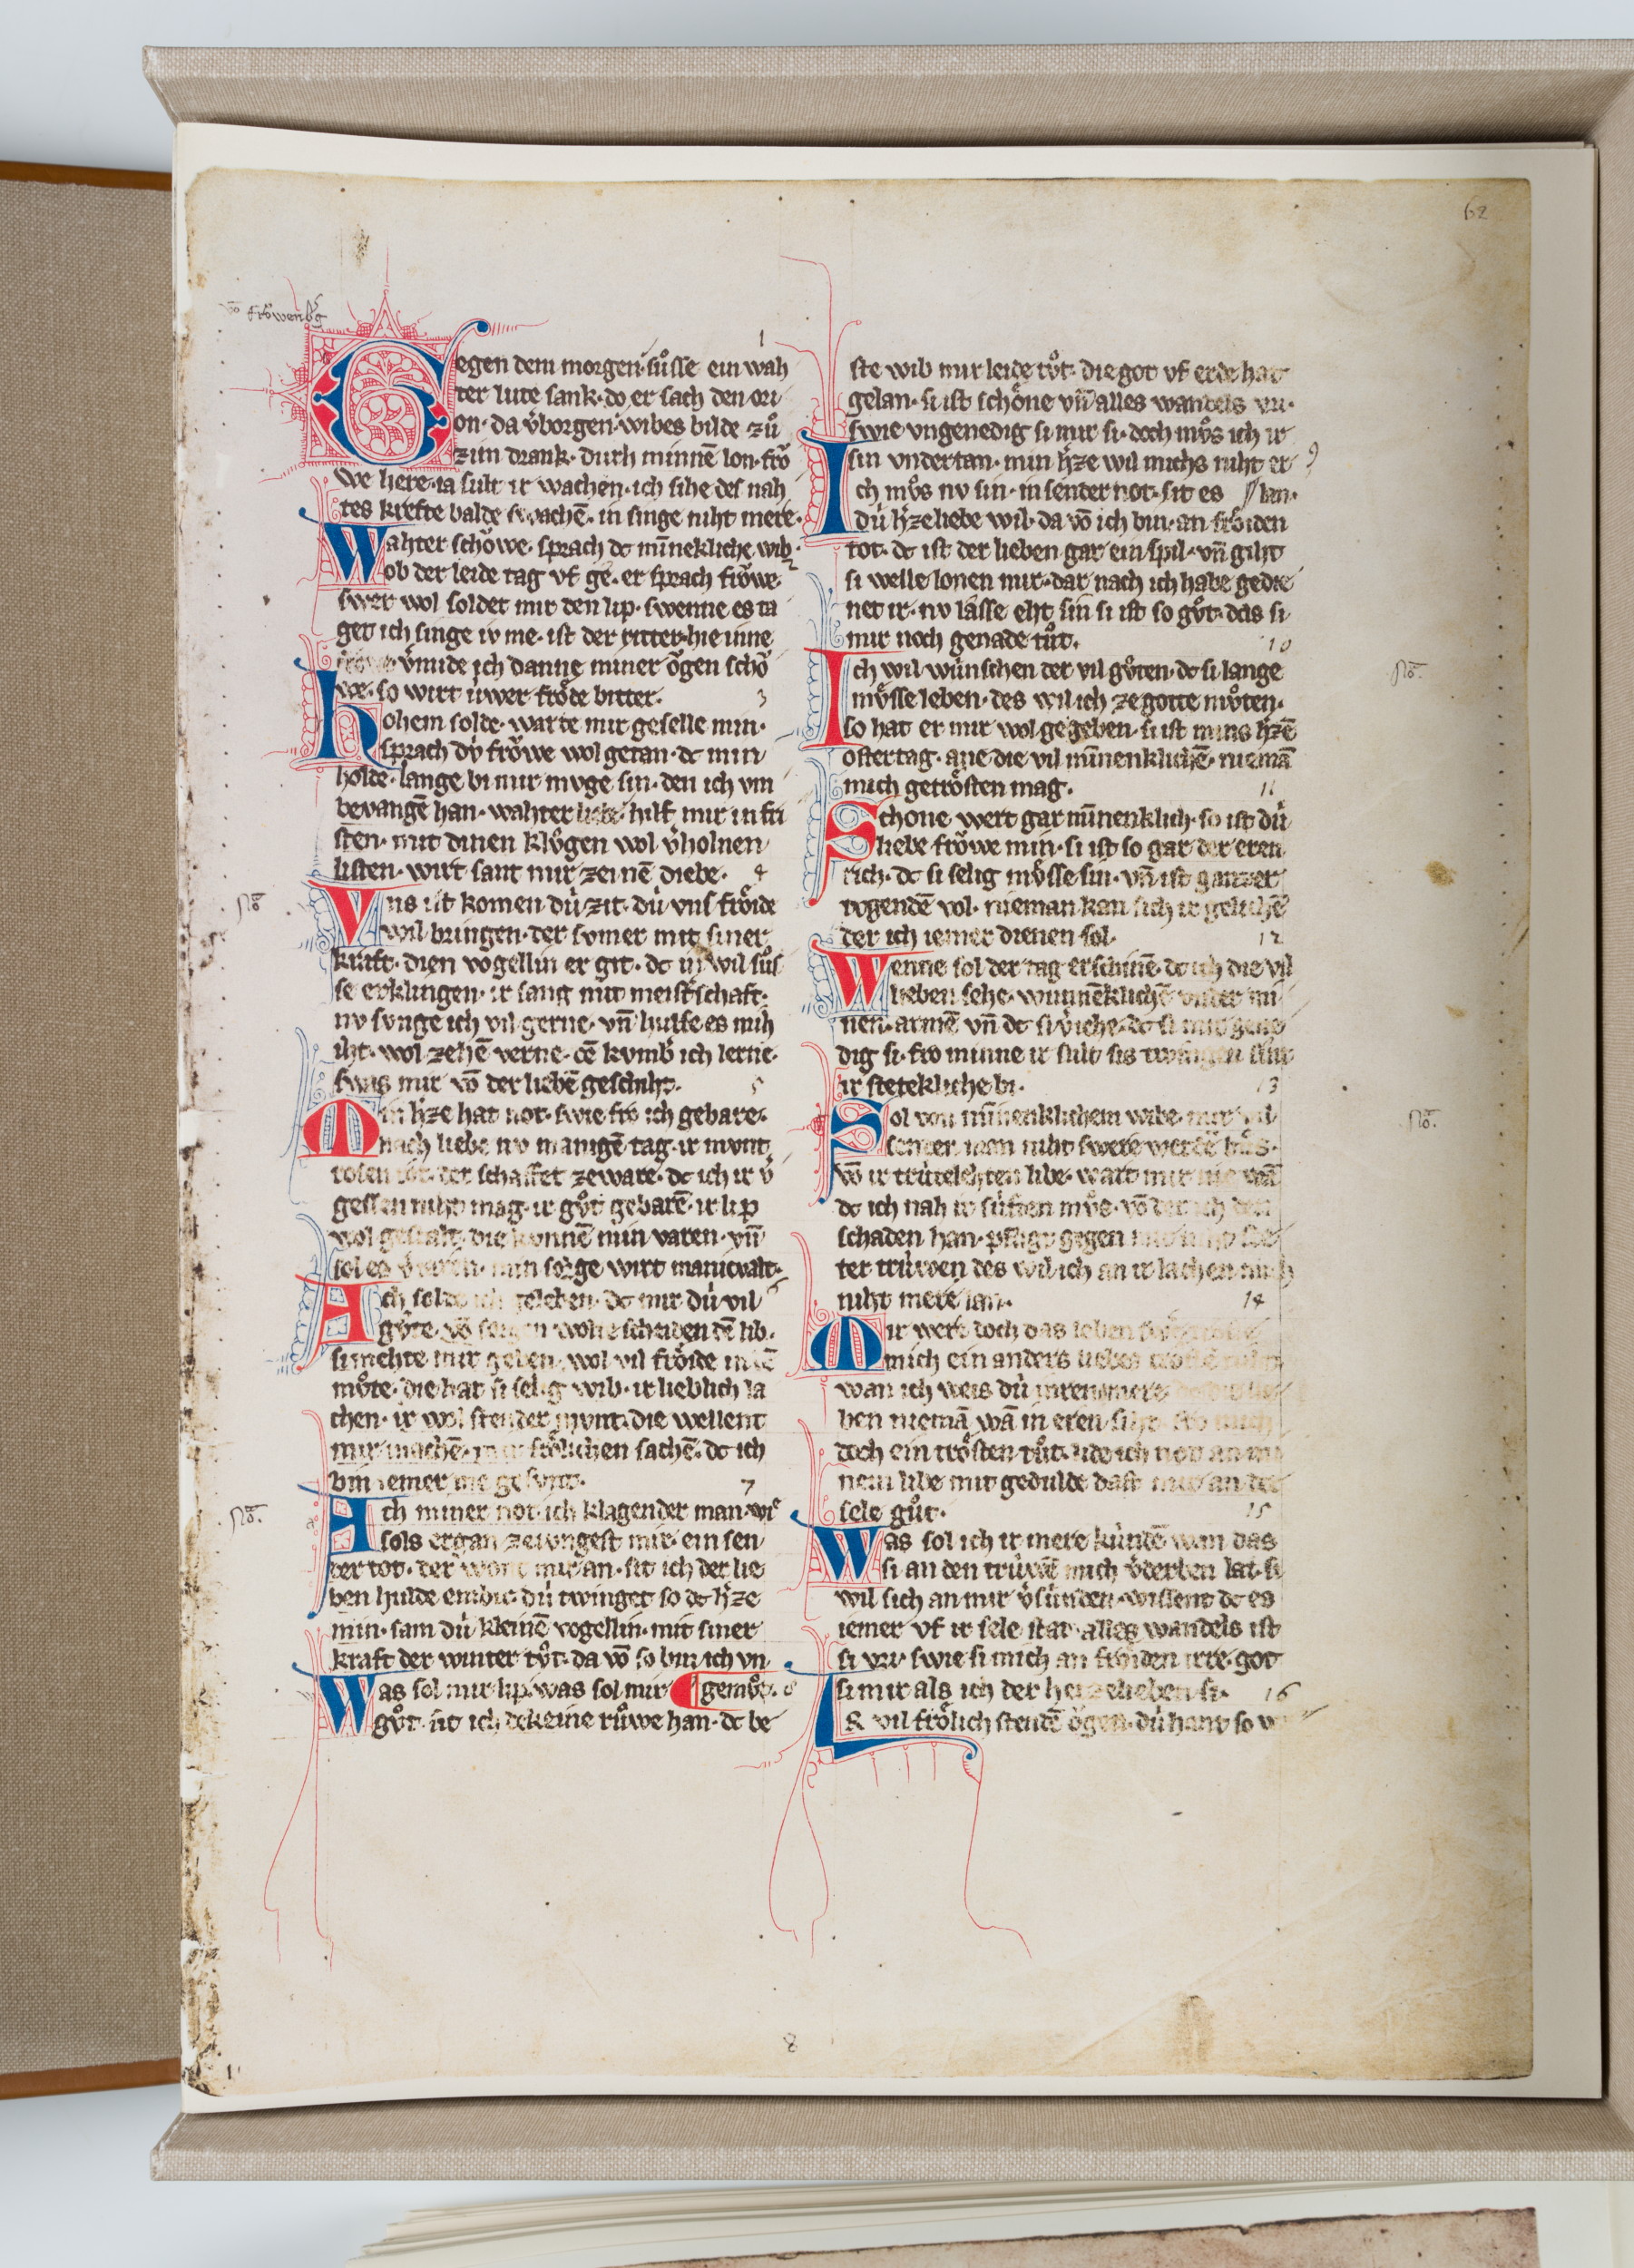 62
vō frowenbͦg
Gegen dem morgen sůsse ein wah
ter lute sank· do er sach den ori
on· da v̓borgen wibes bilde zů
zim drank· durh minnē lon· frŏ
we here· ia sult ir wachen· ich sihe des nah
tes krefte balde swachē· in singe niht mere·
Wahter schŏwe· sprach dc mīnekliche wib·
ob der leide tag vf ge· er sprach frŏwe·
swer wol soldet mir den lip· swenne es ta
get ich singe iv me· ist der ritter hie inne
v̓mide ich danne miner ŏgen schŏ
so wirt úwer frŏde bitter·
3
hohem solde· warte mir geselle min·
sprach dú frŏwe wol getan· dc min
holde· lange bi mir mvge sin· den ich vm
bevangē han· wahter hilf mir in fri
sten· mit dinen klůgen wol v̓holnen
listen· wirt sant mir zeinē diebe·
4
Vns ist komen dú zit· dú vns frŏide
wil bringen· der svmer mit siner
kraft· dien vogellin er git· dc wil sůs
se erklingen· ir sang mit meist̓schaft·
nv svnge ich vil gerne· vn̄ hulfe es mih
iht· wol zehē verne· cē kvmb̓ ich lerne·
swas mir vō der liebē geschiht·
5
Min h̓ze hat not· swie fro ich gebare·
nach liebe nv manigē tag· ir mvnt
rosen rot· der schaffet zeware· dc ich ir v̓
gessen niht mag· ir gůt gebarē· ir lip
wol gestalt· die kvnnē min varen· vn̄
sol es min sorge wirt manicvalt·
6
Ach solde ich geleben· dc mir dú vil
gůte· vō sorgen wolte scheiden dē lib·
si mehte mir geben· wol vil frŏide
můte· die hat si selig wib· ir lieblich la
chen· ir wol stender mvnt· die wellent
mir machē· frŏlichen sachē· dc ich
bin iemer me gesvnt·
7
Ach miner not· ich klagender man· wie
sols ergan zeivngest mir· ein sen
der tot· der wont mir an· sit ich der lie
ben hulde enbir· dú twinget so dc h̓ze
min· sam dú kleinē vogellin· mit siner
kraft der winter tůt· da vō so bin ich vn
gemůt·
8
Was sol mir lip· was sol mir
gůt· sit ich dekeine růwe han· dc be
ste wib mir leide tůt· die got vf erde hat
gelan· si ist schŏne vn̄ alles wandels vri·
swie vngenedig si mir si· doch můs ich ir
sin vndertan· min h̓ze wil michs niht er
lan·
9
Ich můs nv sin· in sender not· sit es
dú h̓zeliebe wil· da vō ich bin· an frŏiden
tot· dc ist der lieben gar ein spil· vn̄ giht
si welle lonen mir· dar nach ich habe gedie
net ir· nv lásse eht sin si ist so gůt· das si
mir noch genade tůt·
10
Ich wil wúnschen der vil gůten· dc si lange
můsse leben· des wil ich ze gotte můten·
so hat er mir wol gegeben· si ist mins h̓zē
ostertag· ane die vil mīnenklichē· niemā
mich getrŏsten mag·
11
Schone wert gar mīnenklich· so ist dú
liebe frŏwe min· si ist so gar der eren
rich· dc si selig můsse sin· vn̄ ist ganzer
tvgendē vol· nieman kan sich ir gelichē
der ich iemer dienen sol·
12
Wenne sol der tag erschinē· dc ich die vil
lieben sehe· wunnēklichē vnder mi
nen armē vn̄ dc si v̓iehe· dc si mir gene
dig si· fro minne ir sult sis twingen
ir stetekliche bi·
13
Sol von mīnenklichem wibe· mir
senden man niht swere werdē bůs·
vō ir trútelehten libe· wart mir nie
dc ich nah ir súften můs· vō der ich den
schaden han· pfligt gegen
ter trúwen des wil ich an ir lachen mich
niht mere lan·
14
Mir wert doch das leben
mich ein anders liebes
wan ich weis dú
ben niemā wā in eren
doch ein trŏsten tůt· lide ich not an mi
nem libe mit gedulde dast mir an der
sele gůt·
15
Was sol ich ir mere kúndē wan das
si an den trúwē mich v̓derben lat· si
wil sich an mir v̓súnden· wissent dc es
iemer vf ir sele stat· alles wandels ist
si vri· swie si mich an frŏiden irre· got
si mir als ich der herzelieben si·
16
Ir vil frŏlich stendē ŏgen· dú hant so
No
No
No
No
8